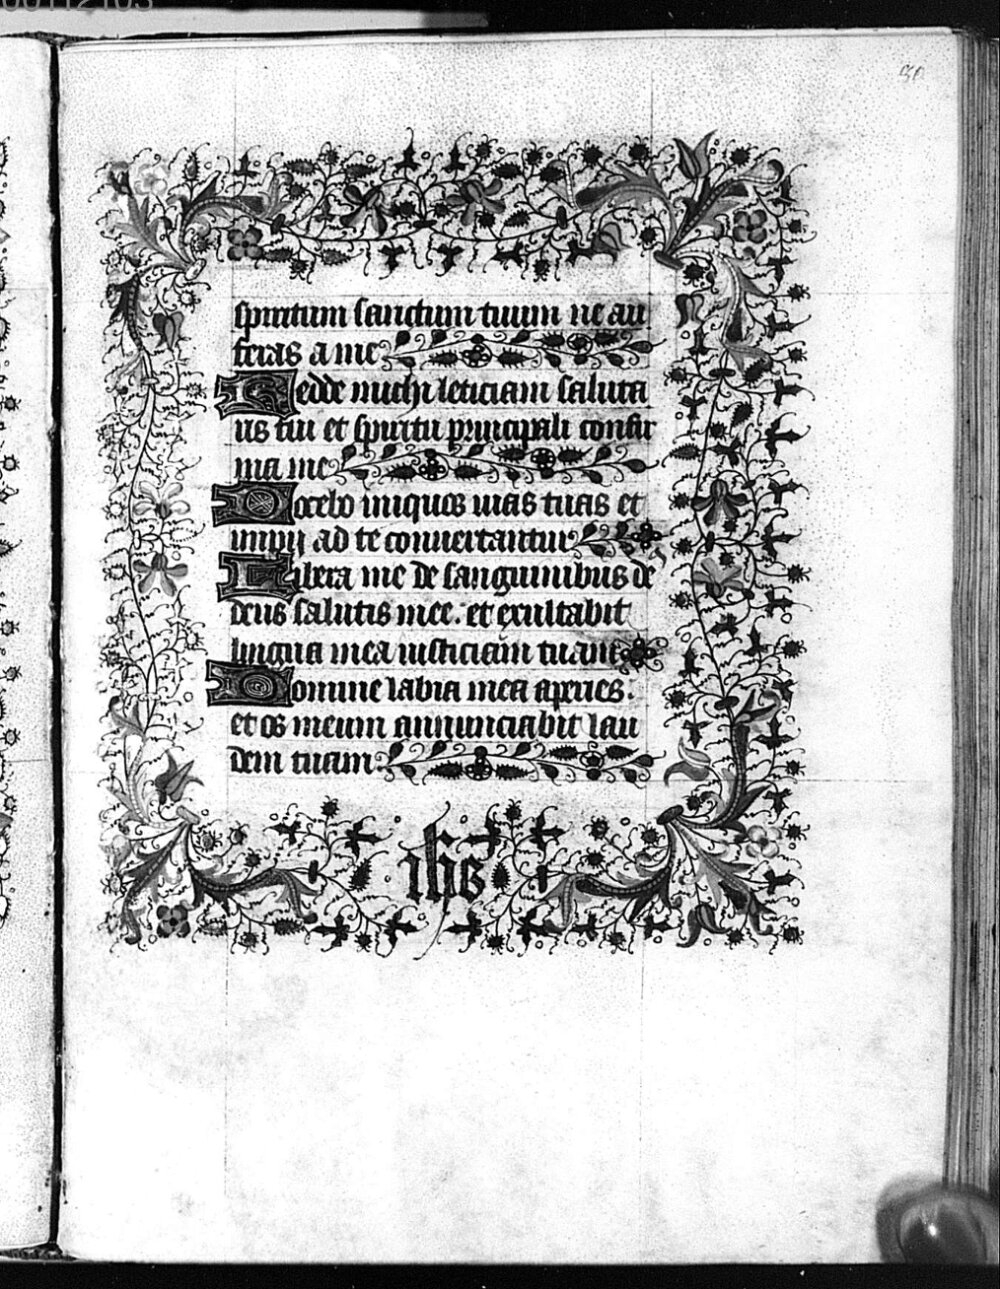 spiritum sanctum tuum ne au
feras a me
Redde michi leticiam saluta
ris tui et spiritu principali confir
ma me
Docebo iniquos uias tuas et
impij ad te conuertantur
Libera me de sanguinibus de
deus salutis mee. et exultabit
lingua mea iusticiam tuam
Domine labia mea aperies:
et os meum annunciabit lau
dem tuam:
ihs